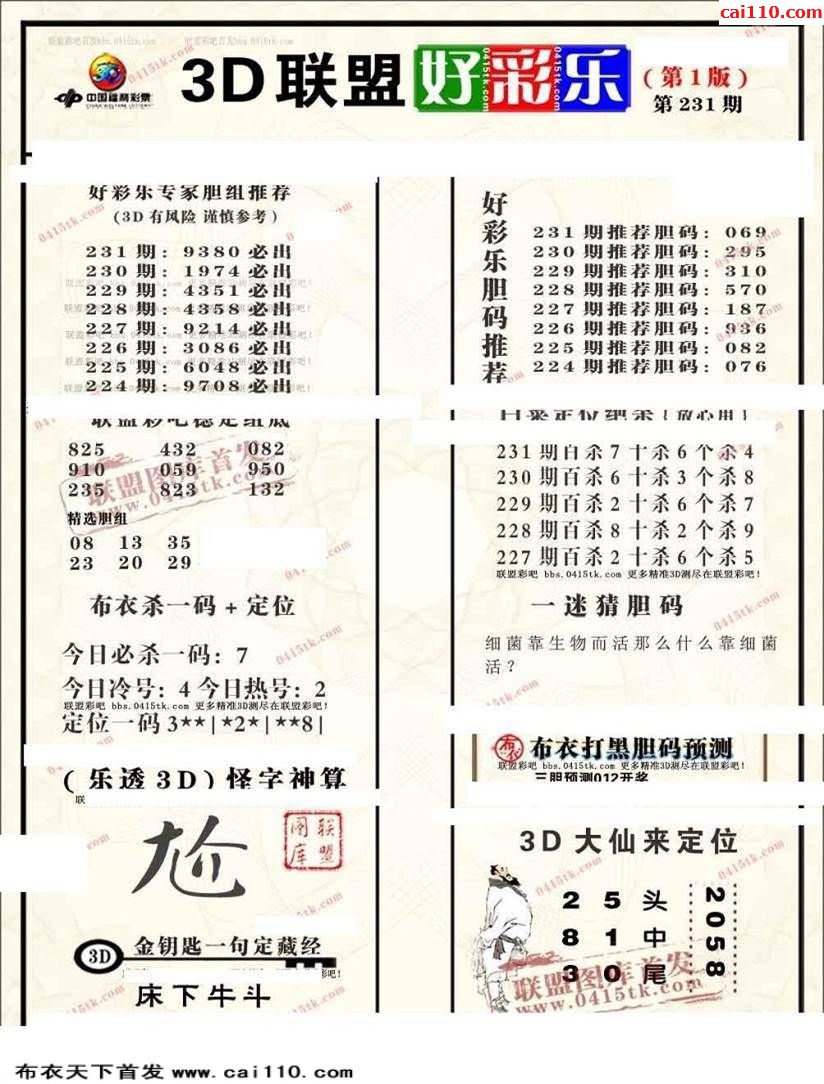 cai110.com
联盟彩吧首发bbs.0415tk.com
中国福利彩票
CHINA WELFARE LOTTERY
3D联盟好彩乐
0415tk.com
(第1版)
第231期
好彩乐专家胆组推荐
(3D有风险 谨慎参考)
231期: 9380必出
230期: 1974必出
229期: 4351必出
228期: 4358必出
227期: 9214必出
226期: 3086必出
225期: 6048必出
224期: 9708必出
联盟彩吧稳定组底
825 432 082
910 059 950
235 823 132
联盟图库首发
www.0415tk.com
精选胆组
08 13 35
23 20 29
布衣杀一码+定位
今日必杀一码: 7
今日冷号: 4 今日热号: 2
联盟彩吧 bbs.0415tk.com 更多精准3D测尽在联盟彩吧!
定位一码3**|*2*|**8|
(乐透3D)怪字神算
联
尬
联盟图库
3D
金钥匙一句定藏经
床下牛斗
好彩乐胆码推荐
231期推荐胆码: 069
230期推荐胆码: 295
229期推荐胆码: 310
228期推荐胆码: 570
227期推荐胆码: 187
226期推荐胆码: 936
225期推荐胆码: 082
224期推荐胆码: 076
231期百杀7十杀6个杀4
230期百杀6十杀3个杀8
229期百杀2十杀6个杀7
228期百杀8十杀2个杀9
227期百杀2十杀6个杀5
联盟彩吧 bbs.0415tk.com 更多精准3D测尽在联盟彩吧!
一迷猜胆码
细菌靠生物而活那么什么靠细菌
活?
布衣
布衣打黑胆码预测
联盟彩吧 bbs.0415tk.com 更多精准3D测尽在联盟彩吧!
三胆预测012开奖
3D大仙来定位
2 5头
8 1中
3 0尾
2058
联盟图库首发
www.0415tk.com
布衣天下首发 www.cai110.com